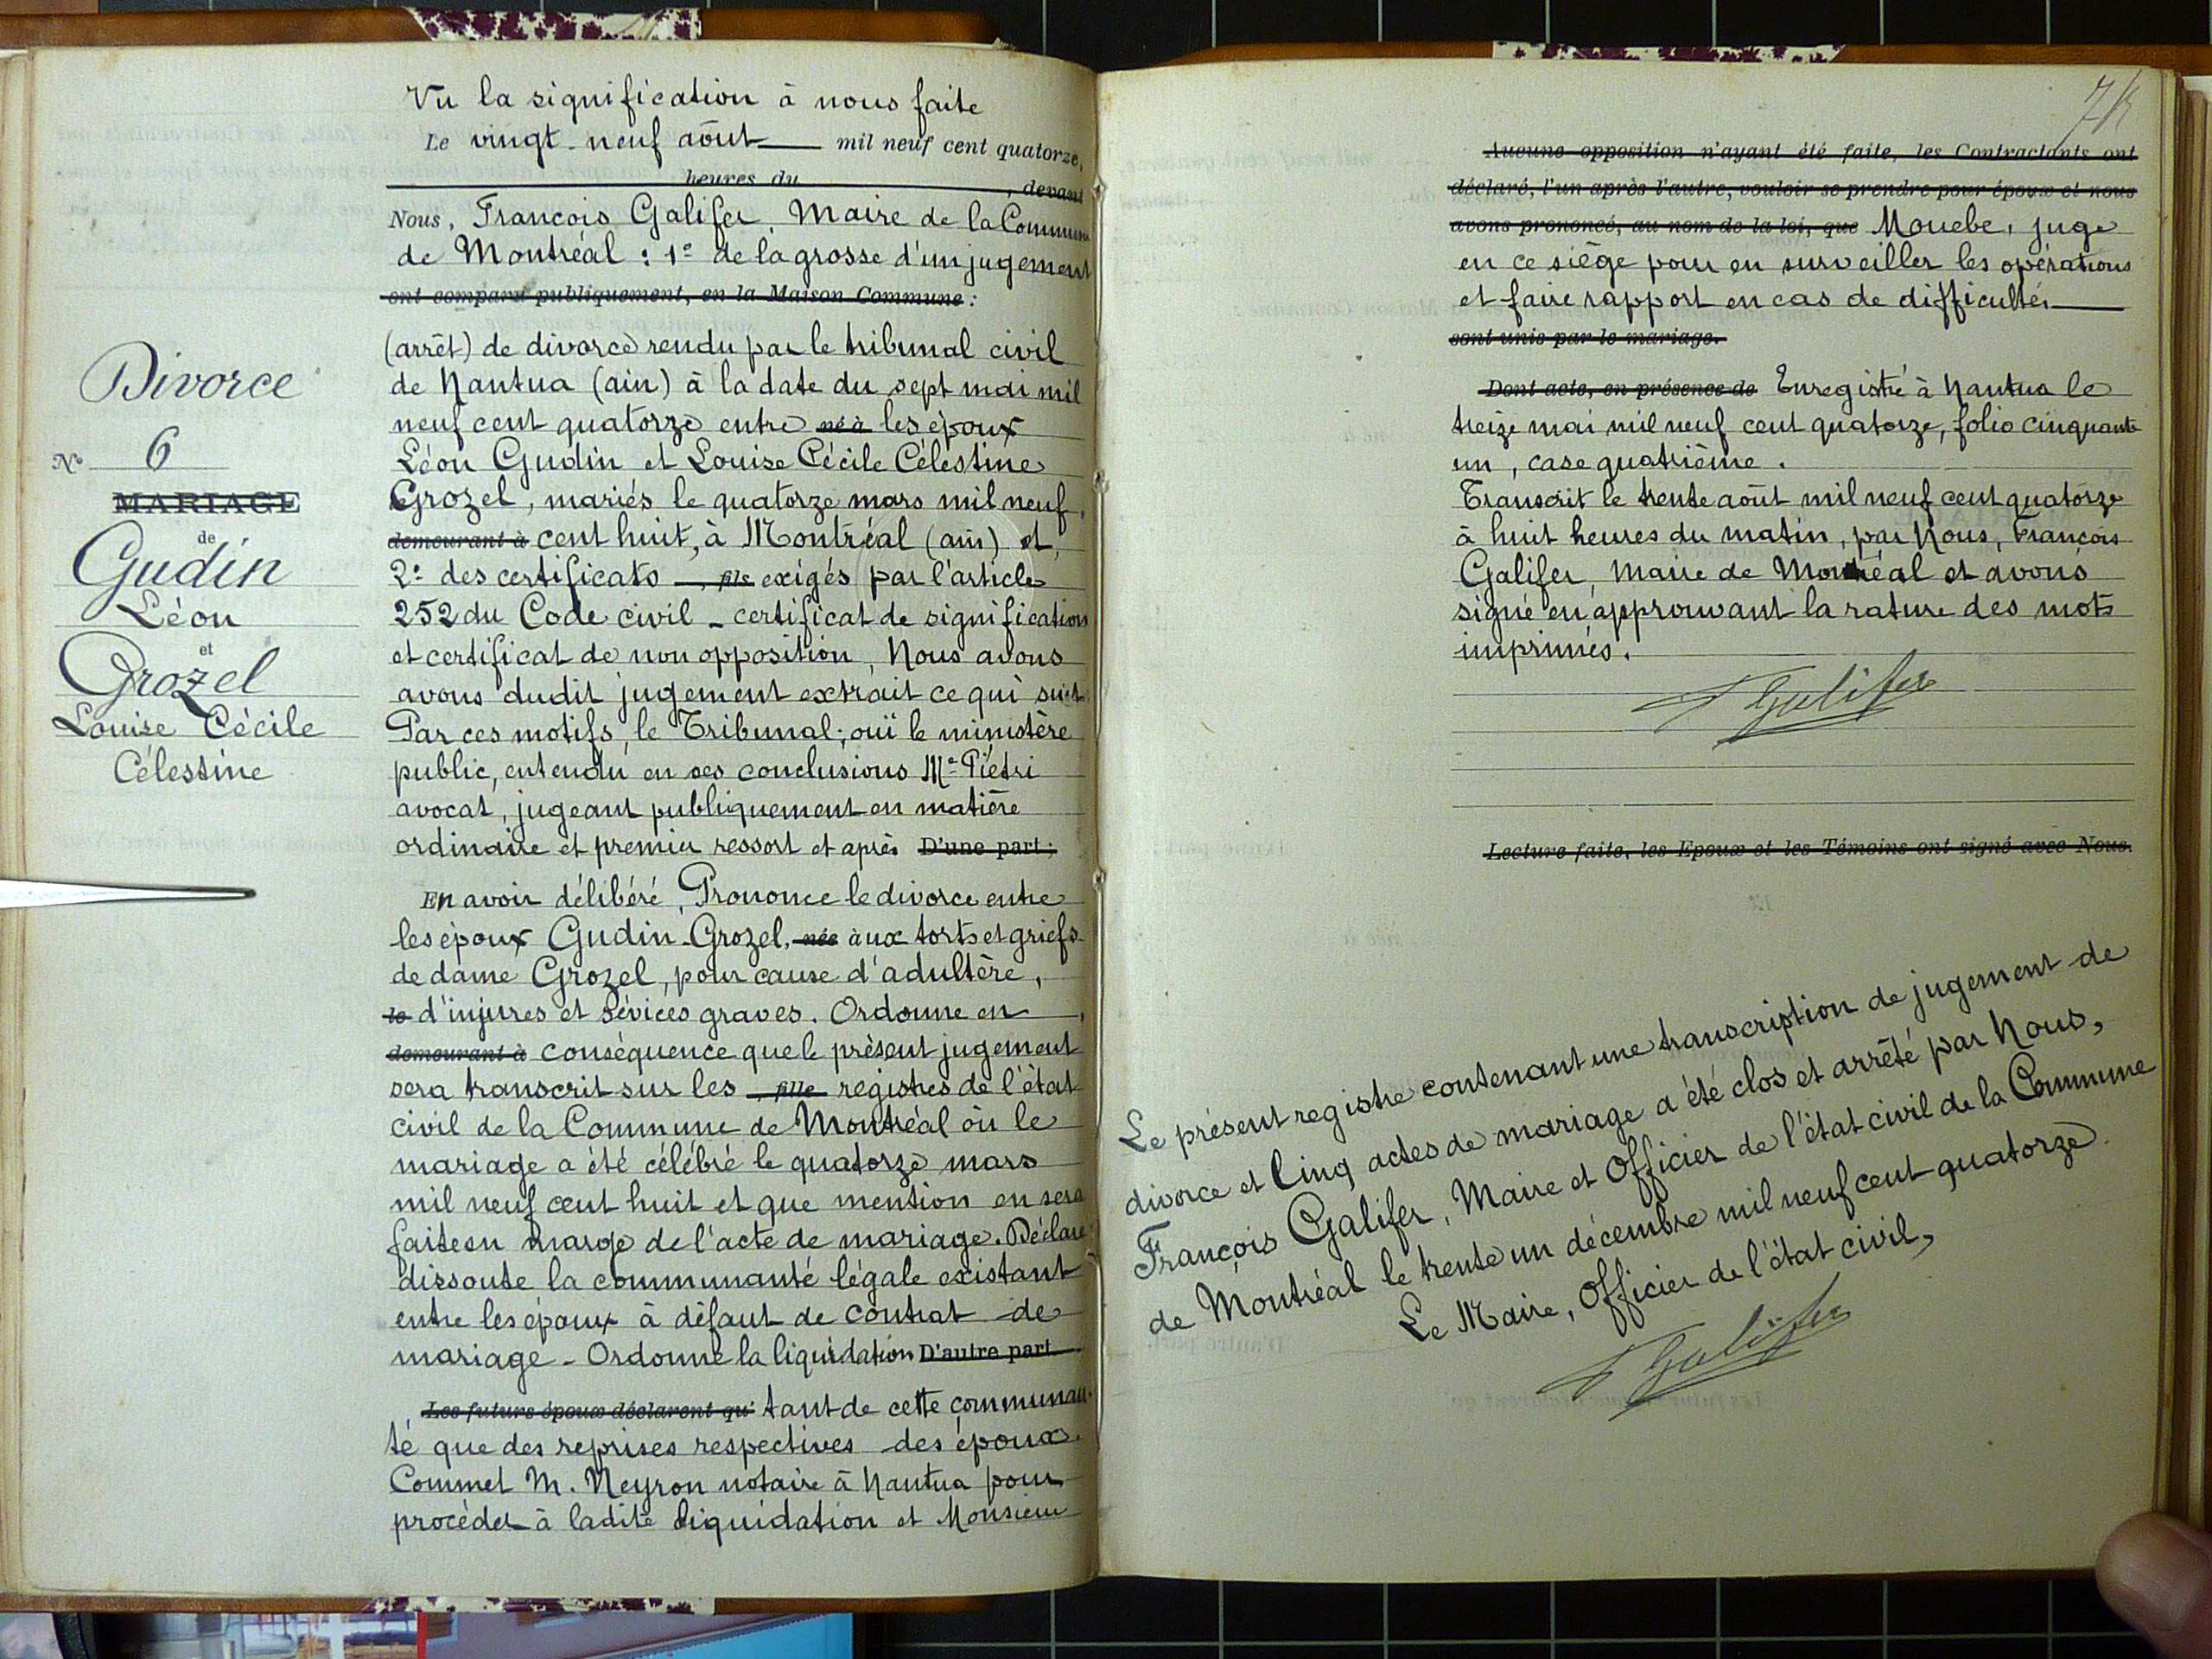 Vu la signification à nous faite
Le vingt-neuf août mil neuf cent quatorze,
heures du , devant
Nous, François Galifer Maire de la Commune
de Montréal : 1º de la grosse d'un jugement
ont comparu publiquement, en la Maison Commune :
(arrêt) de divorce rendu par le tribunal civil
de Nantua (ain) à la date du sept mai mil
neuf cent quatorze entre né à les époux
Léon Gudin et Louise Cécile Célestine
Grozel, mariés le quatorze mars mil neuf
demeurant à cent huit, à Montréal (ain) et,
2º des certificats , fils exigés par l'article
252 du Code civil - certificat de signification
et certificat de non opposition, Nous avons
avons dudit jugement extrait ce qui suit
Par ces motifs, le Tribunal, ouï le ministère
public, entendu en ses conclusions Me Piétri
avocat, jugeant publiquement en matière
ordinaire et premier ressort et après D'une part ;
En avoir délibéré, Prononce le divorce entre
les époux Gudin-Grozel, née aux torts et griefs
de dame Grozel, pour cause d'adultère,
le d'injures et sévices graves. Ordonne en
demeurant à conséquence que le présent jugement
sera transcrit sur les , fille registres de l'état
civil de la Commune de Montréal où le
mariage a été célébré le quatorze mars
mil neuf cent huit et que mention en sera
faite en marge de l'acte de mariage. Déclare
dissoute la communauté légale existant
entre les époux à défaut de contrat de
mariage - Ordonne la liquidation D'autre part.
Les futurs époux déclarent qu' tant de cette communau-
té que des reprises respectives des époux.
Commet M. Neyron notaire à Nantua pour
procéder à ladite liquidation et Monsieur
Divorce
No 6
MARIAGE
de
Gudin
Léon
et
Grozel
Louise Cécile
Célestine
Aucune opposition n'ayant été faite, les Contractants ont
déclaré, l'un après l'autre, vouloir se prendre pour époux et nous
avons prononcé, au nom de la loi, que Mouebe, juge
en ce siège pour en surveiller les opérations
et faire rapport en cas de difficultés
sont unis par le mariage.
Dont acte, en présence de Enregistré à Nantua le
treize mai mil neuf cent quatorze, folio cinquante
un, case quatrième.
Transcrit le trente août mil neuf cent quatorze
à huit heures du matin, par Nous, François
Galifer, Maire de Montréal et avons
signé en approuvant la rature des mots
imprimés.
Galifer
Lecture faite, les Epoux et les Témoins ont signé avec Nous.
Le présent registre contenant une transcription de jugement de
divorce et Cinq actes de mariage a été clos et arrêté par Nous,
François Galifer, Maire et Officier de l'état civil de la Commune
de Montréal le trente un décembre mil neuf cent quatorze
Le Maire, Officier de l'état civil,
Galifer